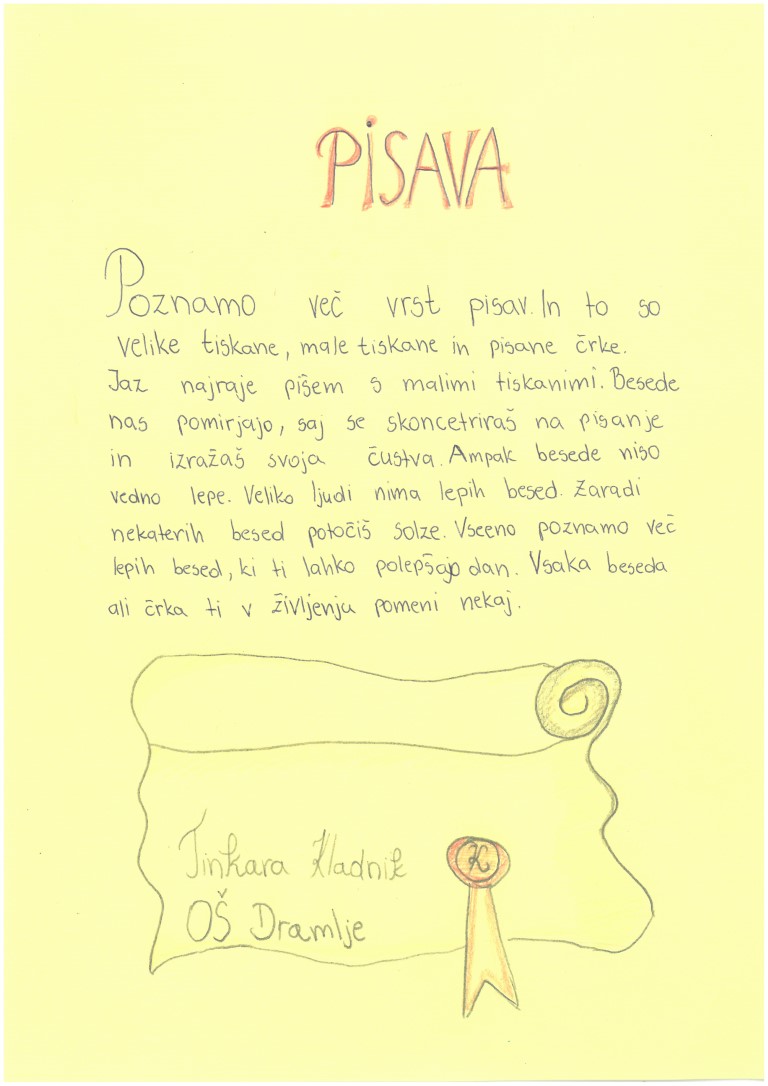 PISAVA
Poznamo več vrst pisav. In to so
velike tiskane, male tiskane in pisane črke.
Jaz najraje pišem s malimi tiskanimi. Besede
nas pomirjajo, saj se skoncetriraš na pisanje
in izražaš svoja čustva. Ampak besede niso
vedno lepe. Veliko ljudi nima lepih besed. Zaradi
nekaterih besed potočiš solze. Vseeno poznamo več
lepih besed, ki ti lahko polepšajo dan. Vsaka beseda
ali črka ti v življenju pomeni nekaj.
Tinkara Kladnik
K
OŠ Dramlje